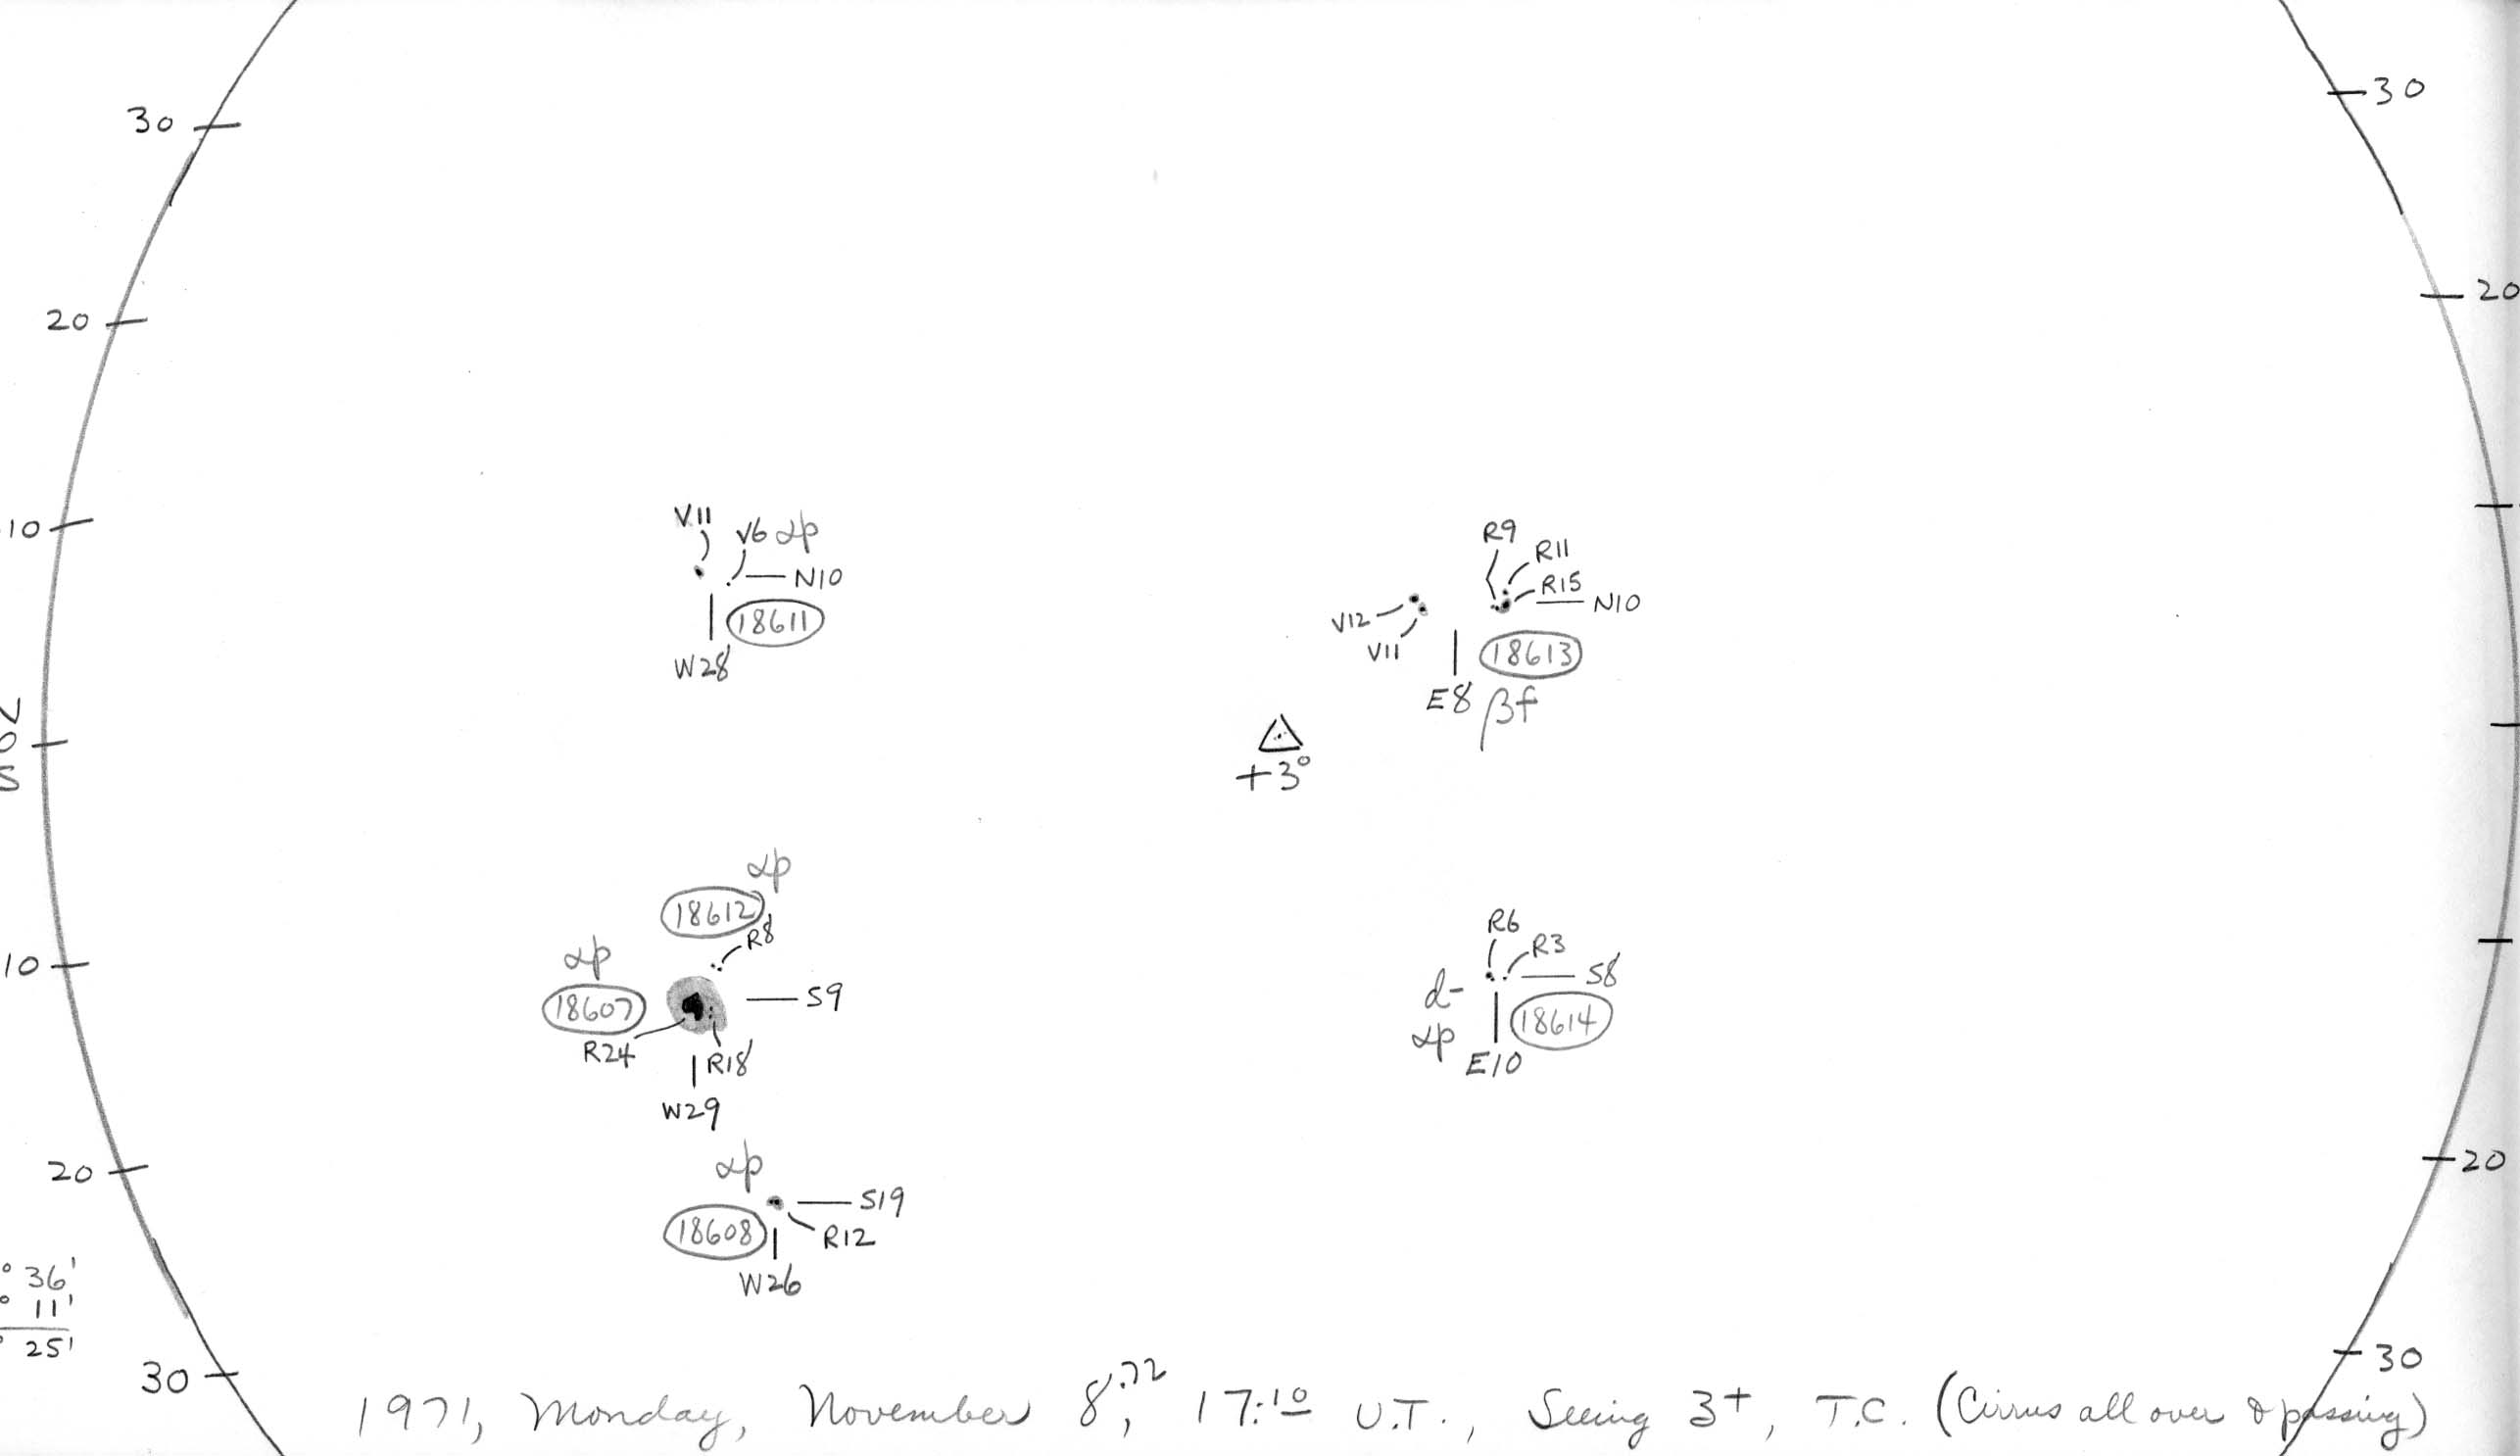 30
30
20
20
10
V11
V6 αp
N10
18611
W28
R9
R11
R15
N10
V12
V11
18613
E8
βf
0
S
+3°
αp
18612
R8
αp
18607
S9
R24
R18
W29
10
R6
R3
S8
d-
αp
18614
E10
20
20
αp
S19
18608
R12
W26
° 36'
° 11'
° 25'
30
30
1971, Monday, November 8.72, 17:10 U.T., Seeing 3+, T.C. (Cirrus all over & passing)